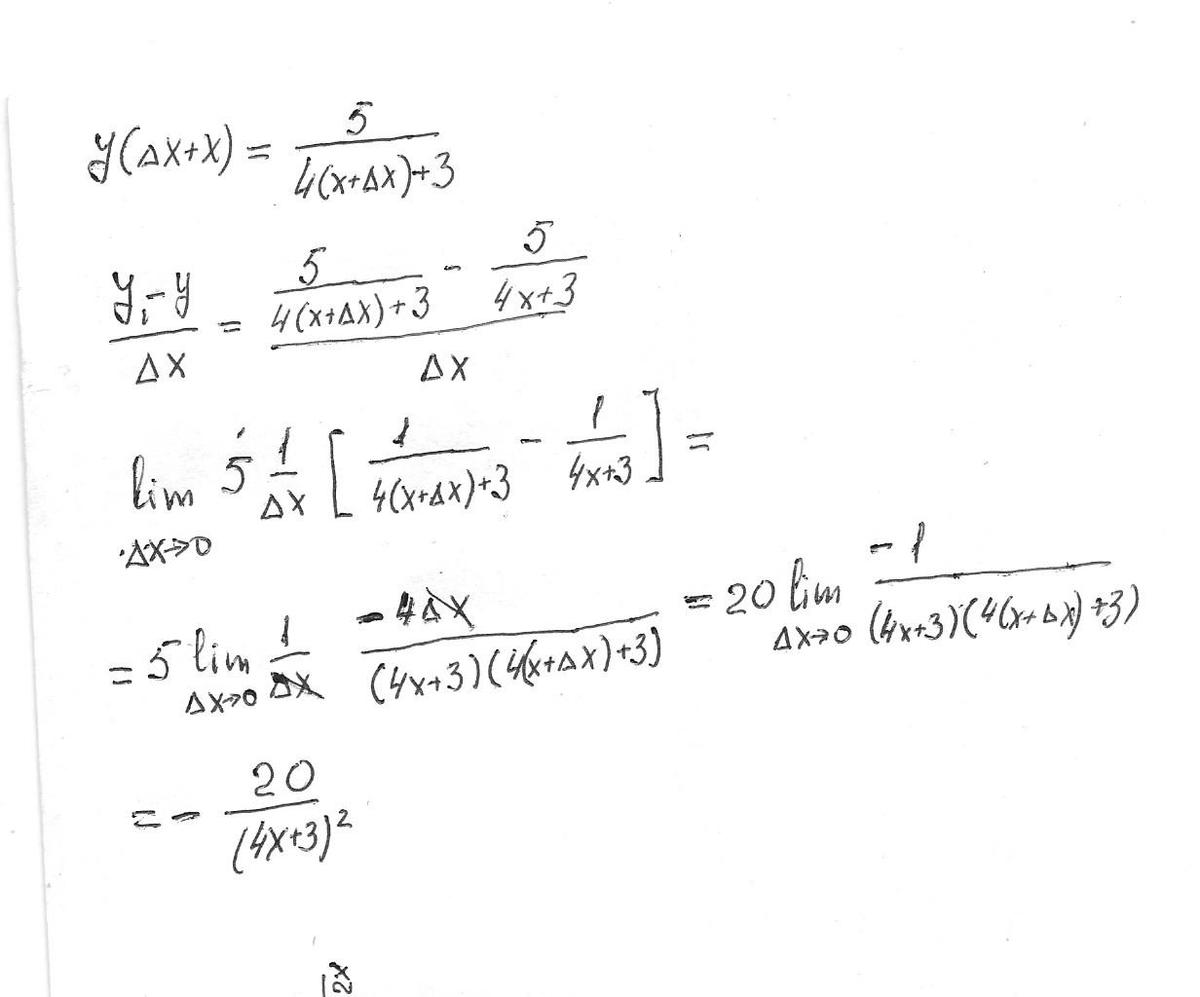 y(Δx+x) = 5/(4(x+Δx)+3)
(y₁-y)/Δx = (5/(4(x+Δx)+3) - 5/(4x+3))/Δx
lim Δx→0 5 1/Δx [1/(4(x+Δx)+3) - 1/(4x+3)] =
= 5 lim Δx→0 1/Δx -4Δx/((4x+3)(4(x+Δx)+3)) = 20 lim Δx→0 -1/((4x+3)(4(x+Δx)+3))
= - 20/(4x+3)²